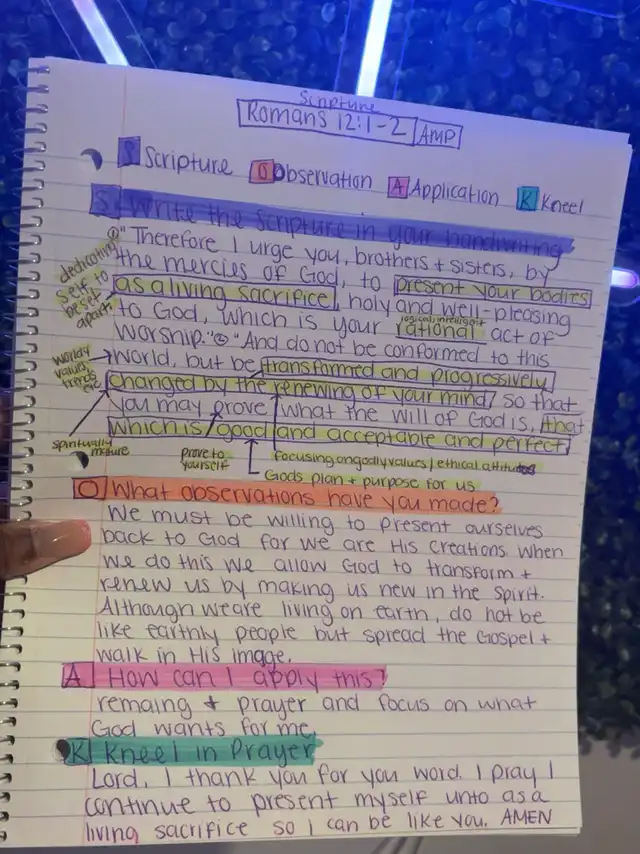 Scripture
Romans 12:1-2 AMP
S Scripture O Observation A Application K Kneel
S Write the Scripture in your handwriting
①"Therefore I urge you, brothers + sisters, by
the mercies of God, to present your bodies
as a living sacrifice, holy and well-pleasing
to God, which is your rational act of
logical, intelligent
worship."② "And do not be conformed to this
world, but be transformed and progressively
changed by the renewing of your mind, so that
you may prove what the will of God is, that
which is good and acceptable and perfect
dedicating
self, to
be set
apart
worldy
values,
trends,
etc.
spiritually
mature
prove to
yourself
focusing on godly values / ethical attitudes
Gods plan + purpose for us
O What observations have you made?
We must be willing to present ourselves
back to God for we are His creations. When
we do this we allow God to transform +
renew us by making us new in the Spirit.
Although we are living on earth, do not be
like earthly people but spread the Gospel +
walk in His image.
A How can I apply this?
remaing + prayer and focus on what
God wants for me,
K Kneel in Prayer
Lord, I thank you for you word. I pray I
continue to present myself unto as a
living sacrifice so I can be like you. AMEN